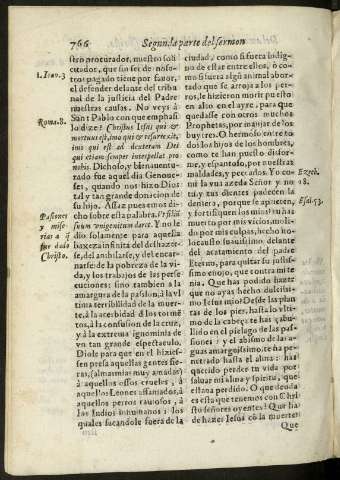 766 Segunda parte del sermon
stro procurador, nuestro solicitador, que sin ser de nosotros
tros pagado tiene por fauor,
el defender delante del tribunal
nal de la justicia del Padre
nuestras causas. No veys à
Sant Pablo con que emphasi
lo dize? Christus Iesus qui &
mortuus est, imo qui & resurrexit,
imus qui est ad dexteram Dei
qui etiam semper interpellat pro
nobis. Dichoso, y bienauenturado
rado fue aquel dia Genoueses,
ses, quando nos hizo Dios
tal y tan grande donacion de
su hijo. Assaz pues emos dicho
cho sobre esta palabra. Vt filium
suum vnigenitum daret. Y no le
dio solamente para aquella
baxeza infinita del deshazerse,
se, del anihilarse, y del encarnarse
narse: de la pobreza de la vida,
da, y los trabajos de las persecuciones:
cuciones: sino tambien a la
amargura de la passion, à la vltima
tima terribilidad de la muerte,
te, à la acerbidad de los tormentos,
à la confusion de la cruz,
y à la extrema ignominia de
vn tan grande espectaculo.
Diole para que en el hiziessen
presa aquellas gentes fieras,
(almas mias muy amadas)
à aquellos ossos crueles, à
aquellos Leones assanados, à
aquellos perros rauiosos, à
los Indios inhumanos: los
quales sacandole fuera de la
1. Ioan. 3
Roma. 8.
Passiones
y miserias
a que
fue dado
Christo.
ciudad, como si fuera indigno
de estar entre ellos, ò como
si fuera algun animal abortado
que se arroja a los perros,
le hizieron morir puesto
en alto en el ayre, para que
quedasse con otros muchos
Prophetas, por manjar de los
buytres. O hermoso entre todos
los hijos de los hombres,
como te han puesto disforme,
y espantoso, por nuestras
maldades, y peccados. Yo conozco
la vna azeda Señor y no
tu, y tus dientes padecen la
dentera, porque se apueten,
y fortifiquen los mios: tu has
muerto por mis vicios, molido
por mis culpas, hecho holocausto
suauissimo, delante
del acatamiento del padre
Eterno, para quitar su justissimo
enojo, que contra mi tenia.
Que has podido hazer
que no ayas hecho dulcissimo
Iesus mio? Desde las plantas
de los pies, hasta lo vltimo
de la cabeça te has çabullido
en el pielago de las passiones:
y el abismo de las aguas
amargosissimo, te ha penetrado
hasta el alma: has
querido perder tu vida por
saluar mi alma y spiritu, que
estaua perdido. O que deuda
es esta que tenemos con Christo
señores oyentes! Que ha
de hazer Iesus cõ la muerte?
Ezech.
18.
Esai. 53.
Que